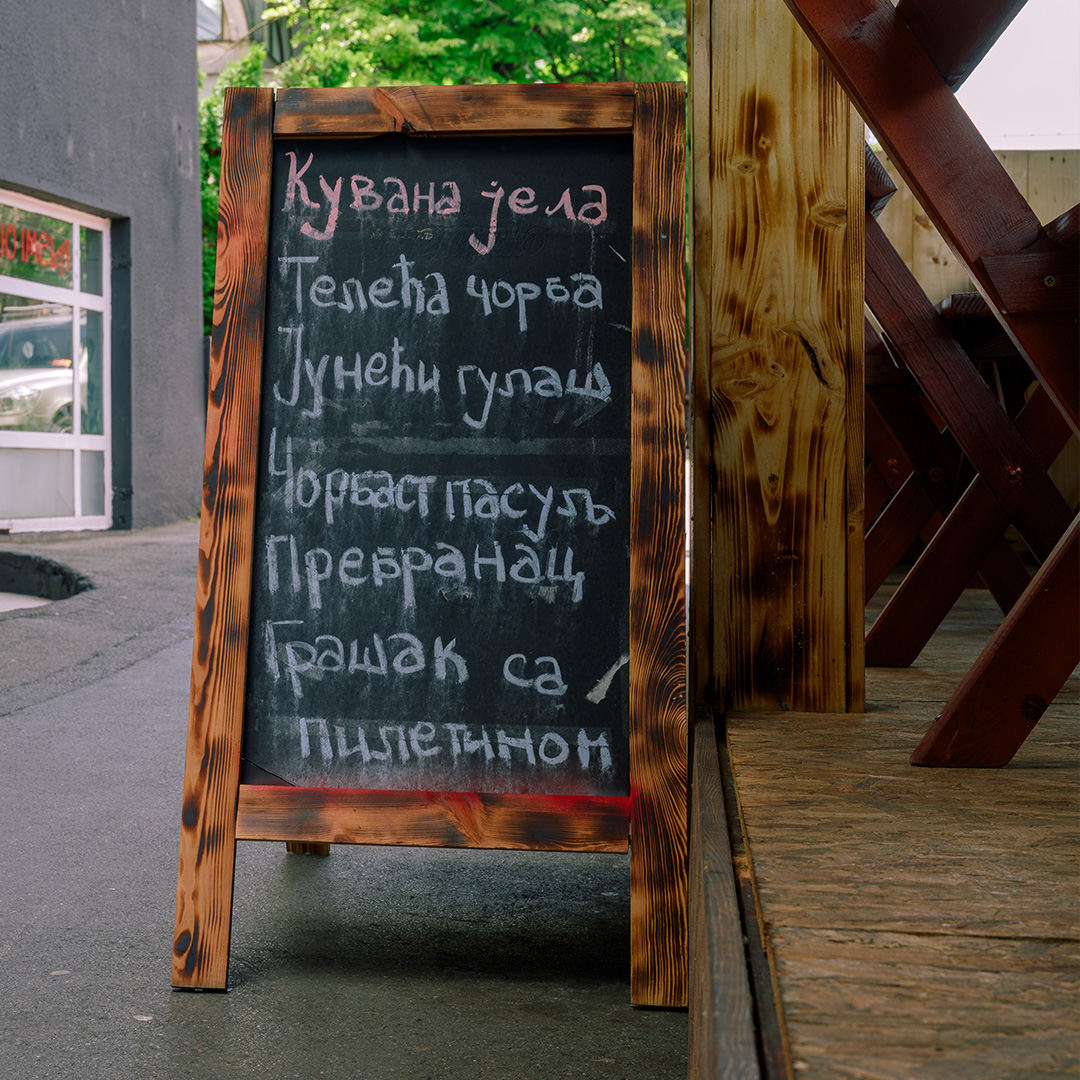 Кувана јела
Телећа чорба
Јунећи гулаш
Чорбаст пасуљ
Пребранац
Грашак са
пилетином